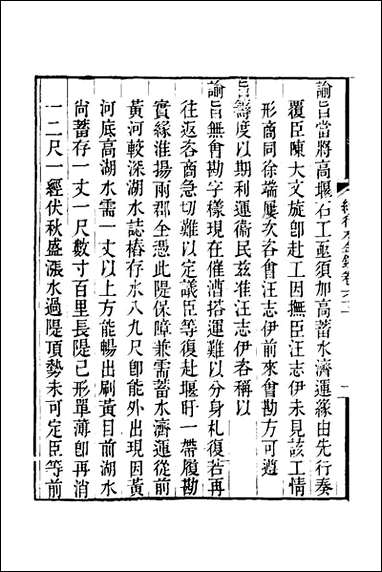 諭旨當將高堰石工亟須加高蓄水濟運緣由先行奏
覆臣陳大文旋卽赴工因撫臣汪志伊未見該工情
形商同徐端屢次咨會汪志伊前來會勘方可遵
旨籌度以期利運衞民茲准汪志伊咨稱以
諭旨無會勘字樣現在催漕搭運難以分身札復若再
往返咨商急切難以定議臣等復赴堰盱一帶履勘
實緣淮揚兩郡全憑此隄保障兼需蓄水濟運從前
黃河較深湖水誌樁存水八九尺卽能外出現因黃
河底高湖水需一丈以上方能暢出刷黃目前湖水
尙蓄存一丈一尺數寸百里長隄已形單薄卽再消
一二尺一經伏秋盛漲水過隄頂勢未可定臣等前
續行水金鑑卷六二
一